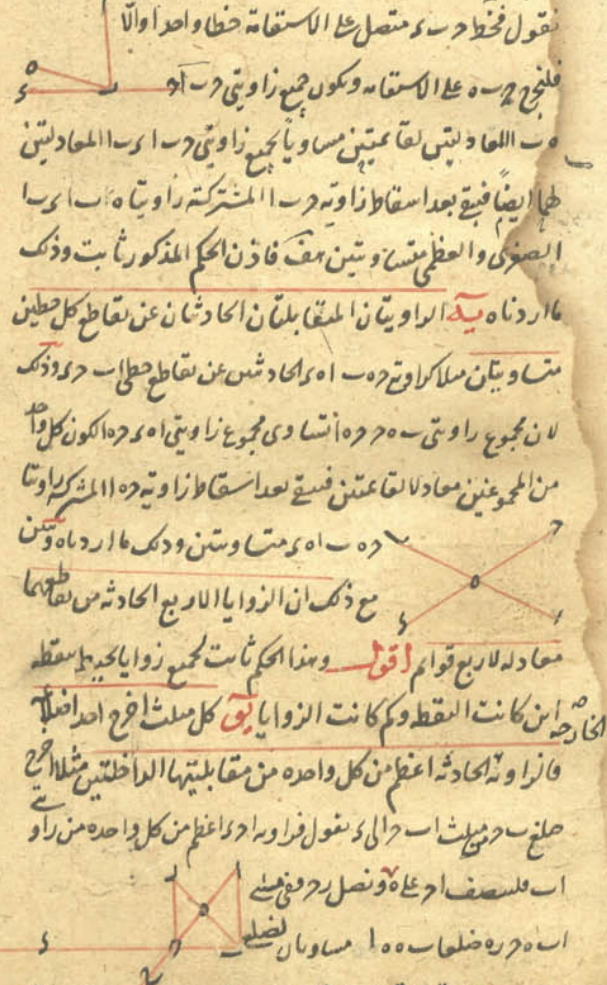 نقول فخط حب ء متصل على الاستقامة خطا واحدا والا
فلنخرج حب ه على الاستقامه ويكون جميع زاويتي حب ا
ه ب ا المعادلتين لقائمتين مساويا لجميع زاويتي حب ا ء ب ا المعادلتين
لهما ايضا فيبقى بعد اسقاط زاويه حب ا المشتركه زاويتا ه ب ا ء ب ا
الصغرى والعظمى متساويتين هف فاذن الحكم المذكور ثابت وذلك
ما اردناه يه الزاويتان المتقابلتان الحادثتان عن تقاطع كل خطين
متساويتان مثلا كزاويتي حه ب اه ء الحادثتين عن تقاطع خطي اب حء وذلك
لان مجموع زاويتي ب ه ح حه ا تساوى مجموع زاويتي اه ء حه ا لكون كل واحد
من المجموعين معادلا لقائمتين فيبقى بعد اسقاط زاويه حه ا المشتركه زاويتا
حه ب اه ء متساويتين وذلك ما اردناه وتبين
مع ذلك ان الزوايا الاربع الحادثه من تقاطعهما
معادله لاربع قوائم اقول وهذا الحكم ثابت لجميع زوايا تحيط بنقطه
اين كانت النقطه وكم كانت الزوايا يو كل مثلث اخرج احد اضلاعه
فالزاويه الحادثه الخارجه اعظم من كل واحده من مقابلتيها الداخلتين مثلا اخرج
ضلع ب ح من مثلث اب ح الى ء نقول فزاويه اح ء اعظم من كل واحده من زاويتي
اب فلننصف اح على ه ونصل
اب ه ح ر ه ضلعا ب ه ه ا مساويان لضلعي